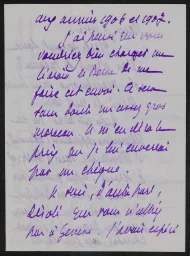 aux années 1906 et 1907.
J'ai pensé que vous
voudriez bien charger un
libraire de Berne de me
faire cet envoi. Ce sera
sans doute un assez gros
morceau. Il m'en dira le
prix que je lui enverrai
par un chèque.
Je suis, d'autre part,
désolé que vous n'alliez
pas à Genève. J'avais espéré